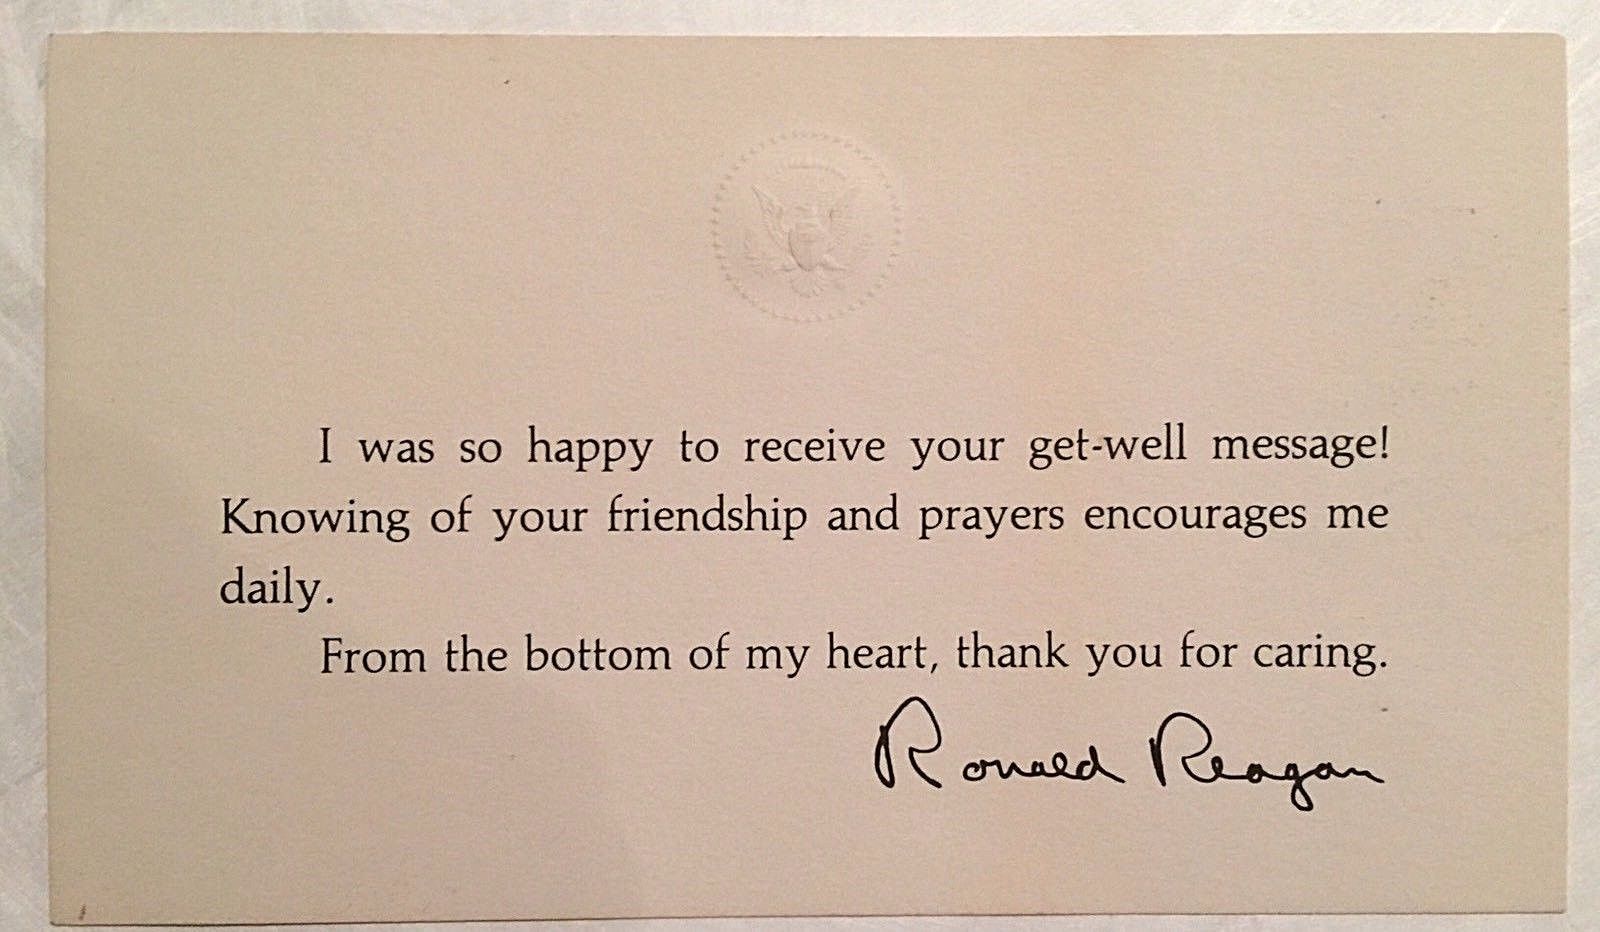 I was so happy to receive your get-well message!
Knowing of your friendship and prayers encourages me
daily.
From the bottom of my heart, thank you for caring.
Ronald Reagan